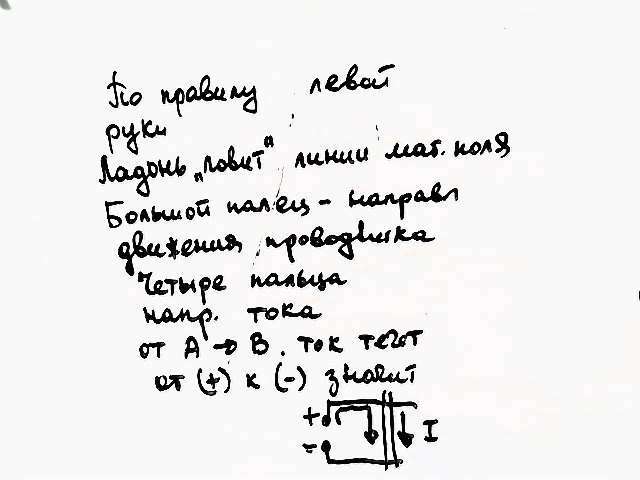 По правилу левой
руки
Ладонь „ловит" линии маг. поля
Большой палец – направл
движения проводника
Четыре пальца
напр. тока
от А → В. ток течёт
от (+) к (-) значит
+
- I